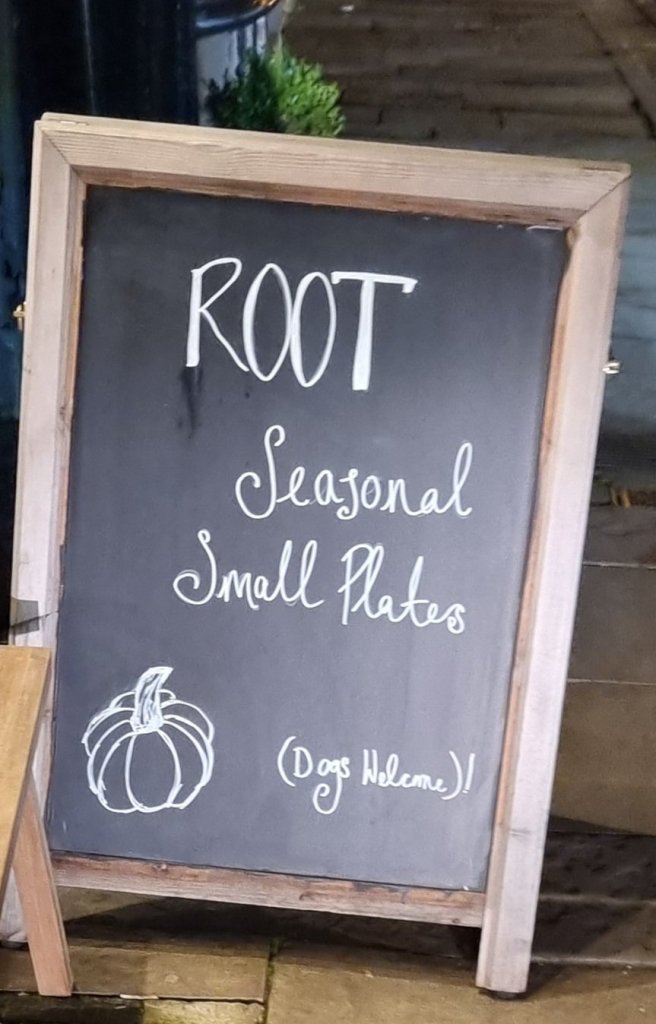 ROOT
Seasonal
Small Plates
(Dogs Welcome)!